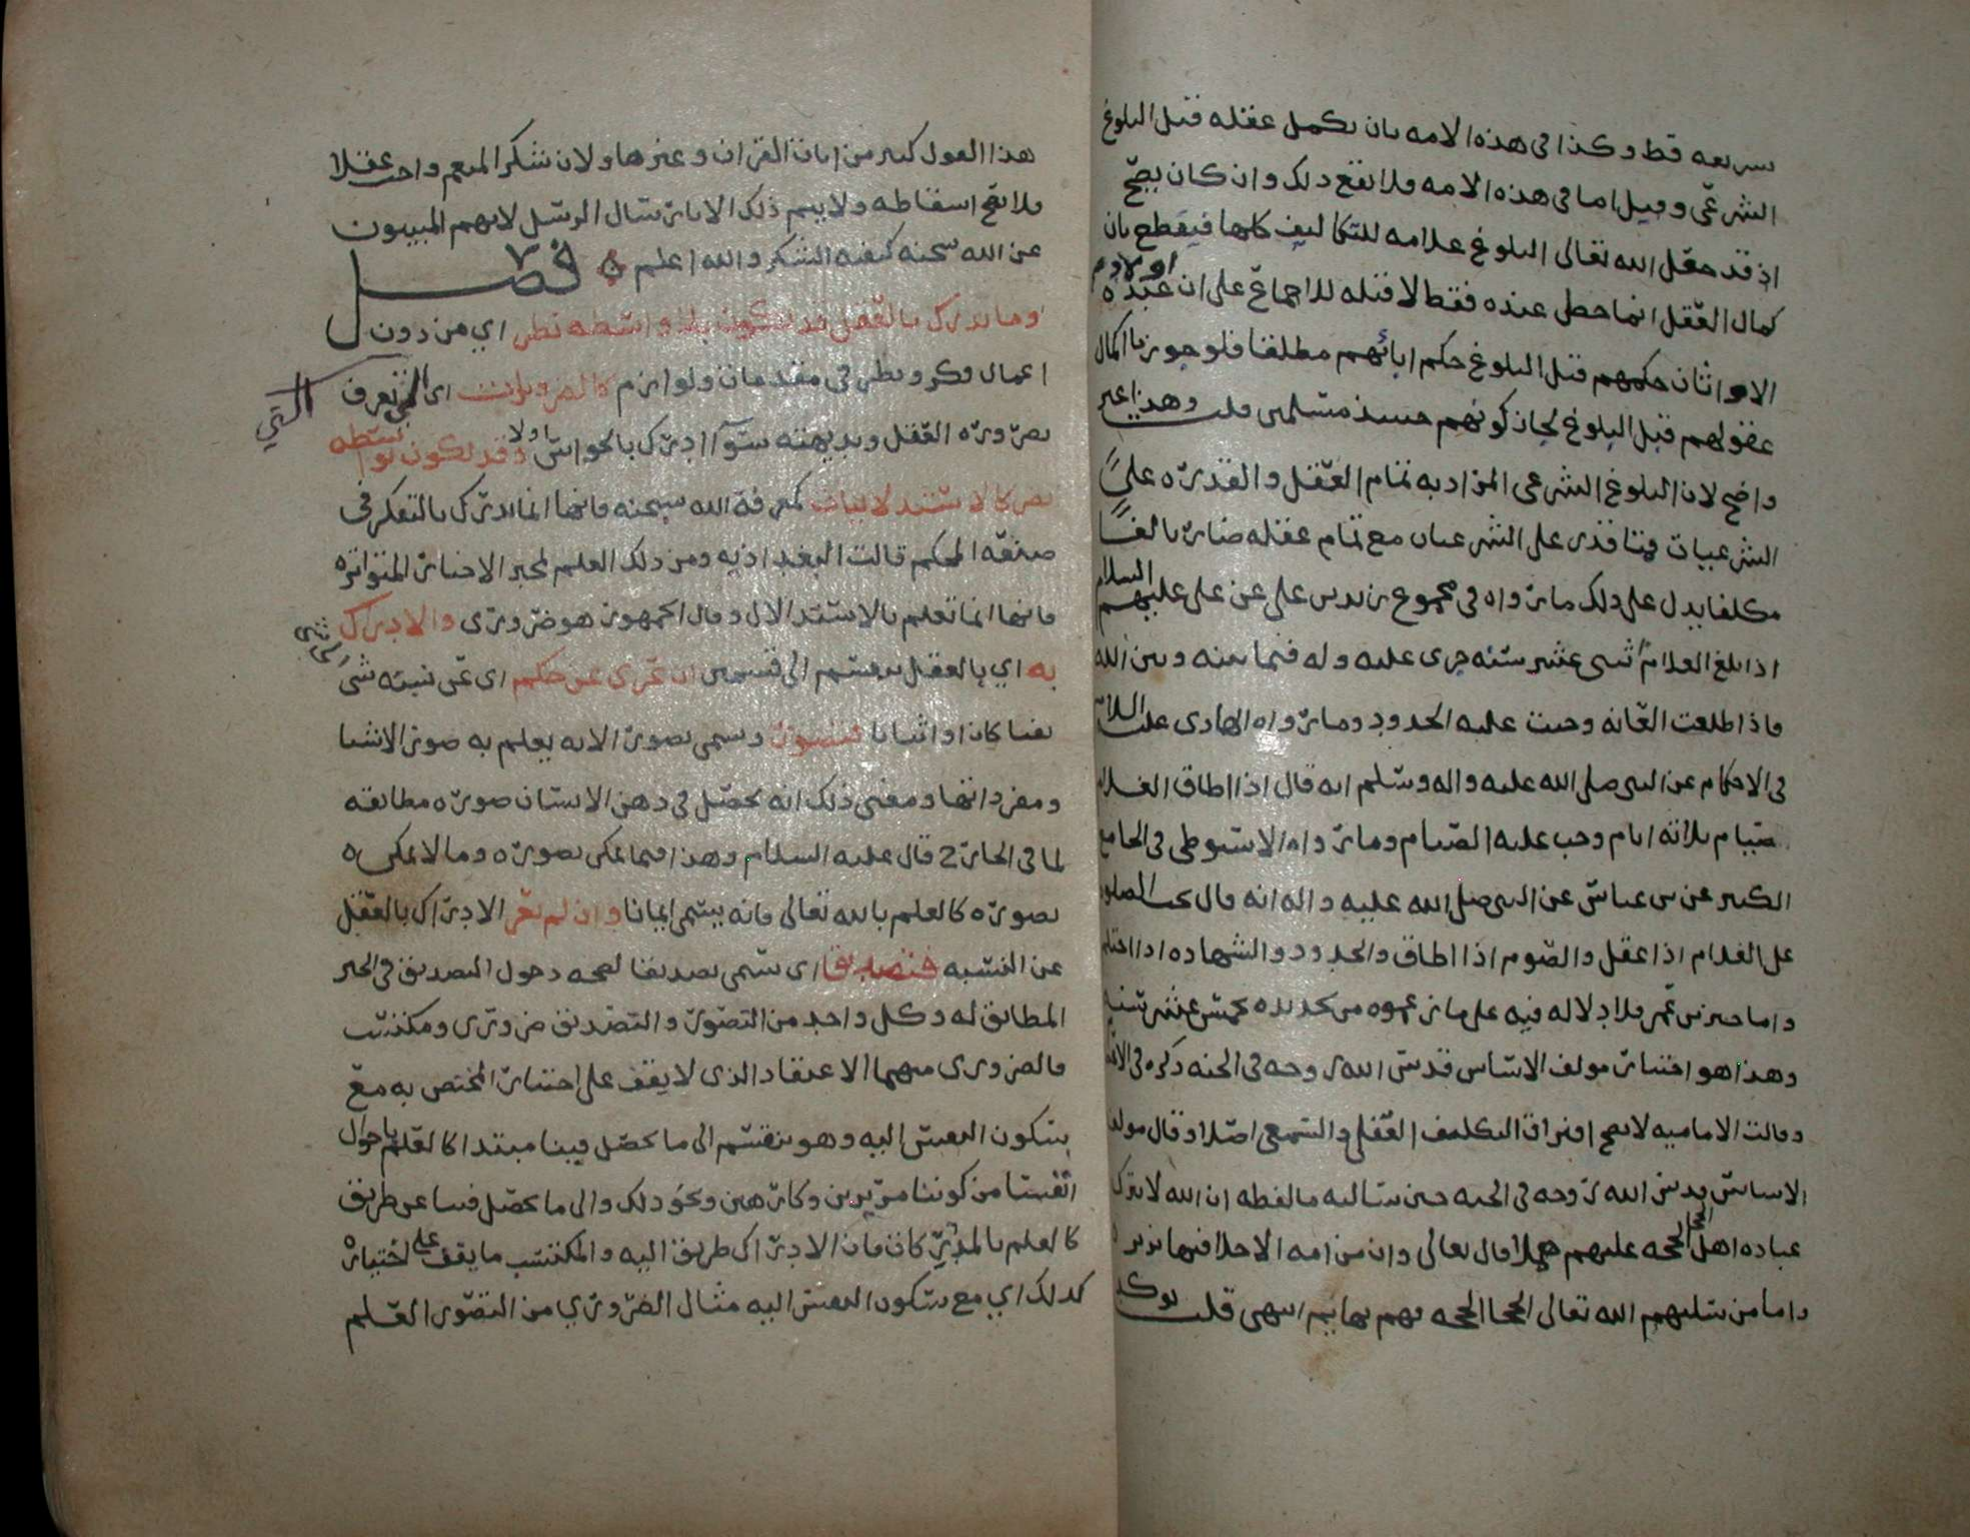 شريعه قط وكذا في هذه الامه بان يكمل عقله قبل البلوغ
الشرعي وقيل اما في هذه الامه فلا يقع ذلك وان كان يصح
اذ قد جعل الله تعالى البلوغ علامه للتكاليف كلها فيقطع بان
كمال العقل انما حصل عنده فقط لا قبله للاجماع على ان اولاد عبدة
الاوثان حكمهم قبل البلوغ حكم ابائهم مطلقا فلو جوزنا اكمال
عقولهم قبل البلوغ لجاز كونهم حينئذ مسلمين قلت وهذا غير
واضح لان البلوغ الشرعي المراد به تمام العقل والقدره على
الشرعيات فمتا قدر على الشرعيات مع تمام عقله صار بالغا
مكلفا يدل على ذلك ما رواه في مجموع زيد بن علي عن علي عليهم السلام
اذا بلغ الغلام اثنى عشر سنه جرى عليه وله فيما بينه وبين الله
فاذا طلعت العانه وجبت عليه الحدود وما رواه الهادي عليه السلام
في الاحكام عن النبي صلى الله عليه واله وسلم انه قال اذا اطاق الغلام
صيام ثلاثة ايام وجب عليه الصيام وما رواه الاسيوطي في الجامع
الكبير عن بن عباس عن النبي صلى الله عليه واله انه قال تجب الصلوه
على الغلام اذا عقل والصوم اذا اطاق والحدود والشهاده اذا احتلم
واما خبر بن عمر فلا دلاله فيه على ما زعموه من تحديده بخمس عشر سنه
وهذا هو اختيار مولف الاساس قدس الله روحه في الجنه ذكره في
وقالت الاماميه لا يصح افتراق التكليف العقلي والسمعي اصلا وقال مولف
الاساس قدس الله روحه في الجنه حين سالته ما لفظه ان الله لا يترك
عباده اهل الحجا الحجه عليهم هملا قال تعالى وان من امه الا خلا فيها نذير
واما من سلبهم الله تعالى الحجا الحجه فهم بهائم انتهى قلت يوكد
هذا القول كثير من ايات القران وغيرها ولان شكر المنعم واجب عقلا
فلا يصح اسقاطه ولا يتم ذلك الا بارسال الرسل لانهم المبينون
عن الله سبحنه كيفية الشكر والله اعلم فصل
وما يدرك بالعقل قد يكون بلا واسطه نظر اي من دون
اعمال فكر ونظر في مقدمات ولوازم كالضروريات اي التي تعرف
التي
بضرورة العقل وبديهته سوآ ادرك بالحواس اولا وقد يكون بواسطه
نظر كالاستدلاليات كمعرفة الله سبحنه فانها انما تدرك بالتفكر في
صنعه المحكم قالت البغداديه ومن ذلك العلم بخبر الاخبار المتواتره
فانها انما تعلم بالاستدلال وقال الجمهور هو ضروري والادراك
به اي بالعقل ينقسم الى قسمين ان عري عن حكم اي عن نسبة شي
الى شي
نفيا كان او اثباتا فتصور ويسمى تصورا لانه يعلم به صور الاشيا
ومفرداتها ومعنى ذلك انه يحصل في ذهن الانسان صوره مطابقه
لما في الخارج قال عليه السلام وهذا فيما يمكن تصوره وما لا يمكن
تصوره كالعلم بالله تعالى فانه يسمى ايمانا وان لم يعر الادراك بالعقل
عن النسبه فتصديق اي يسمى تصديقا لصحه دخول التصديق في الخبر
المطابق له وكل واحد من التصور والتصديق ضروري ومكتسب
فالضروري منهما الاعتقاد الذي لا يقف على اختيار المختص به مع
سكون النفس اليه وهو ينقسم الى ما يحصل فينا مبتدا كالعلم باحوال
انفسنا من كوننا مريدين وكارهين ونحو ذلك والى ما يحصل فينا عن طريق
كالعلم بالمدركات فان الادراك طريق اليه والمكتسب ما يقف على اختياره
كذلك اي مع سكون النفس اليه مثال الضروري من التصور العلم